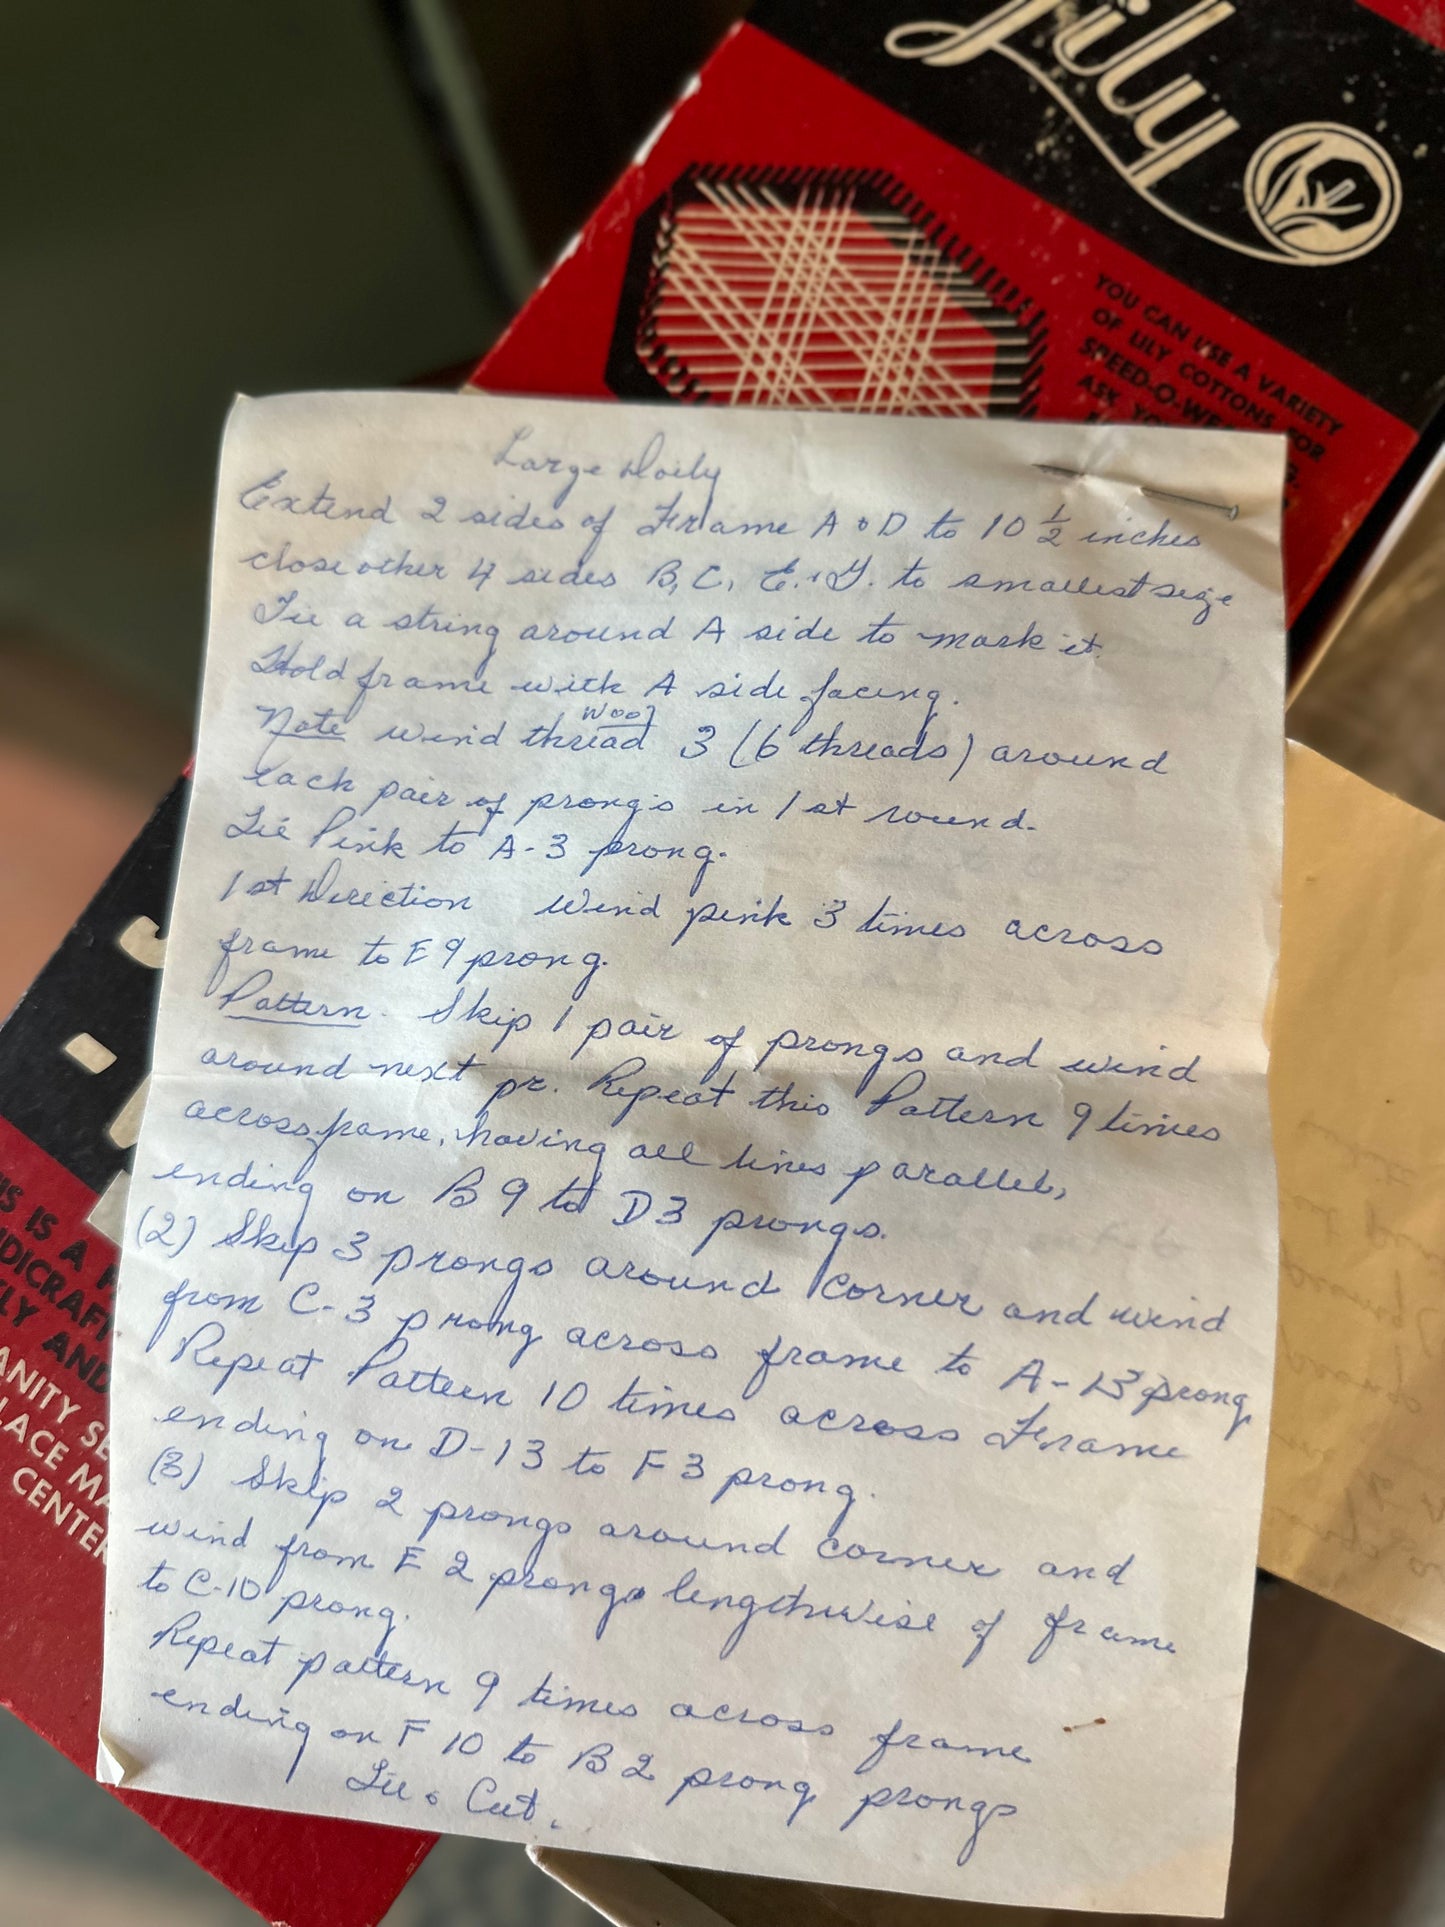 Lily
YOU CAN USE A VARIETY
OF LILY COTTONS FOR
SPEED-O-WE
ASK YO
Large Doily
Extend 2 sides of Frame A & D to 10 1/2 inches
close other 4 sides B, C, E. & F. to smallest seize
Tie a string around A side to mark it.
Hold frame with A side facing.
Note wind thread wool 3 (6 threads) around
each pair of prongs in 1st round.
Tie Pink to A-3 prong.
1st Direction Wind pink 3 times across
frame to E9 prong.
Pattern. Skip 1 pair of prongs and wind
around next pr. Repeat this Pattern 9 times
across frame, having all lines parallel,
ending on B9 to D3 prongs.
(2) Skip 3 prongs around corner and wind
from C-3 prong across frame to A-13 prong
Repeat Pattern 10 times across Frame
ending on D-13 to F3 prong.
(3) Skip 2 prongs around corner and
wind from E 2 prongs lengthwise of frame
to C-10 prong.
Repeat pattern 9 times across frame
ending on F 10 to B2 prong prongs
Tie & Cut.
IS IS A
NDICRAF
LY AND
ANITY SE
LACE MA
CENTER